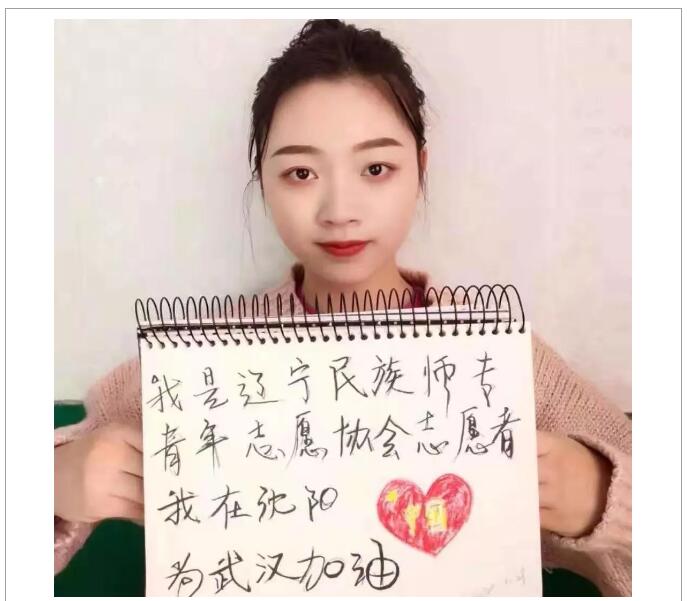 我是辽宁民族师专
青年志愿协会志愿者
我在沈阳
中国
为武汉加油